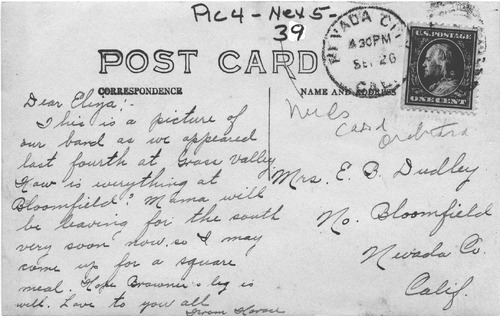 Pic 4 - Nex 5 -
39
NEVADA CITY
4 30 PM
SEP 26
CAL.
U.S. POSTAGE
ONE CENT
POST CARD
CORRESPONDENCE
NAME AND ADDRESS
Dear Eliza;-
This is a picture of
our band as we appeared
last fourth at Grass Valley
How is everything at
Bloomfield? Mama will
be leaving for the south
very soon now, so I may
come up for a square
meal. Hope Brownie's leg is
well. Love to you all
From
Needs
Card
Mrs. E. B. Dudley
No. Bloomfield
Nevada Co.
Calif.